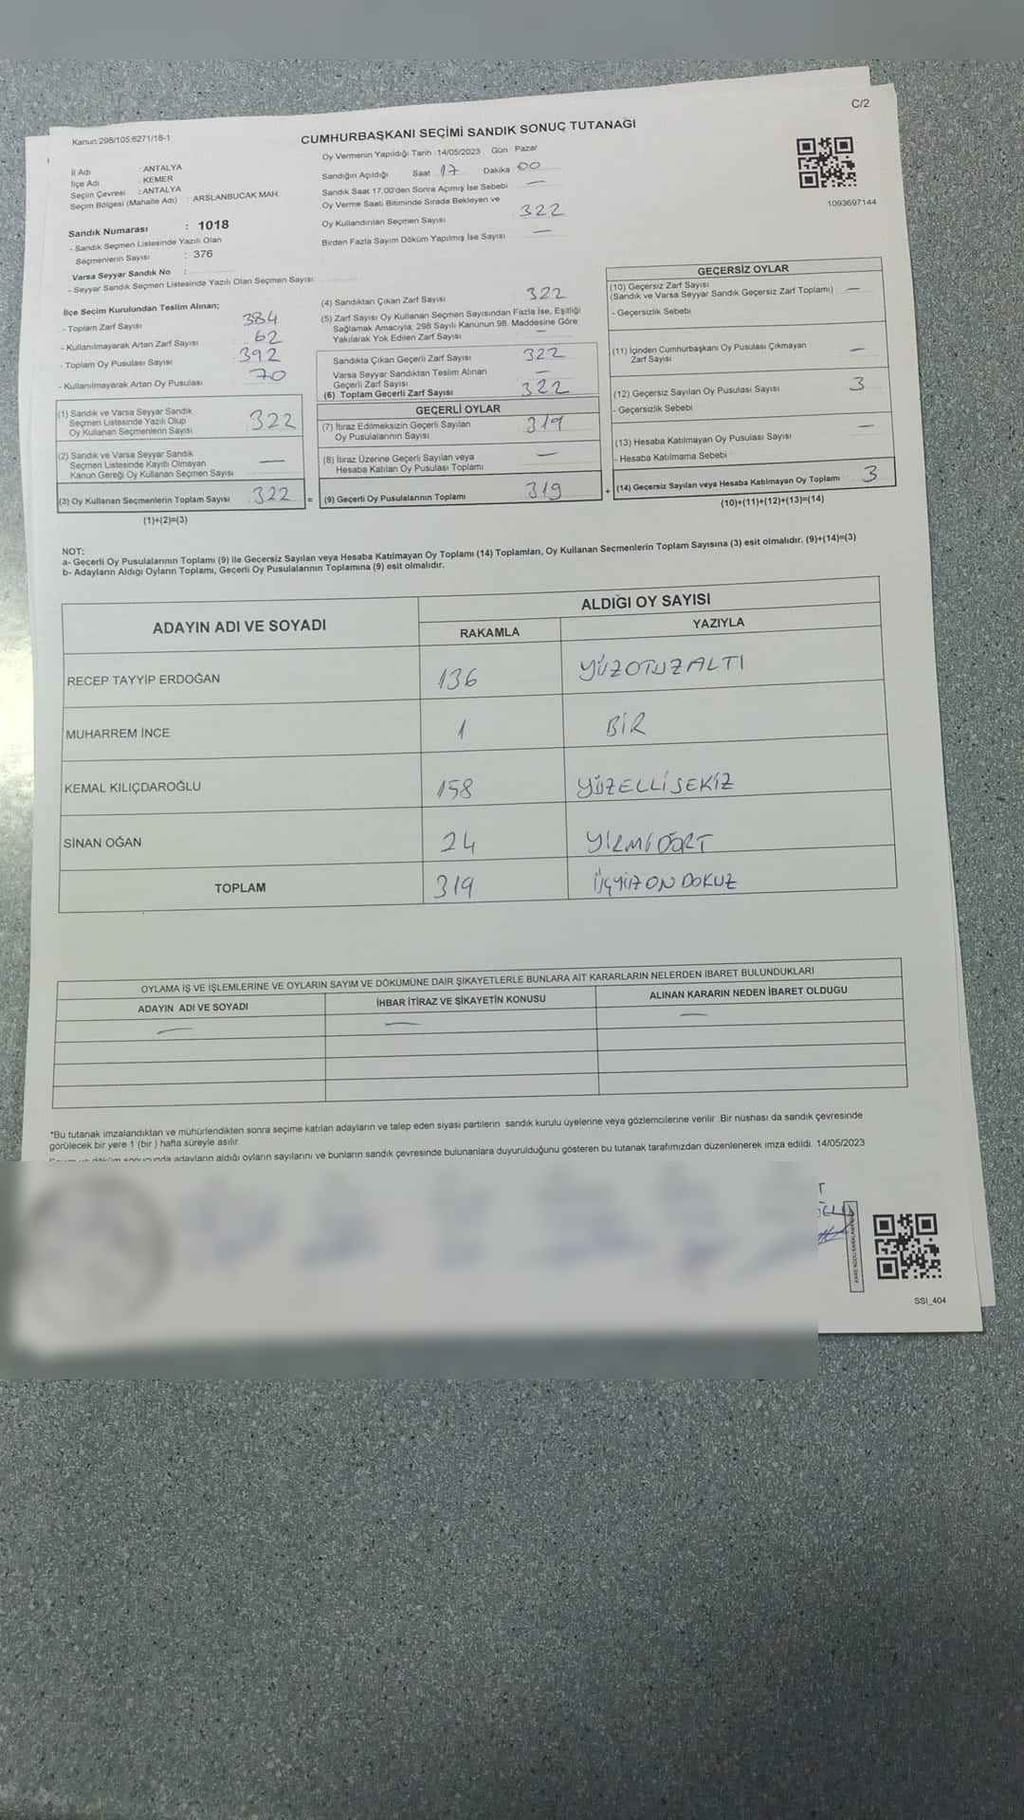 C/2
Kanun:298/105:6271/18-1
CUMHURBAŞKANI SEÇİMİ SANDIK SONUÇ TUTANAĞI
1093697144
İl Adı : ANTALYA
İlçe Adı : KEMER
Seçim Çevresi : ANTALYA
Seçim Bölgesi (Mahalle Adı) : ARSLANBUCAK MAH.
Sandık Numarası : 1018
- Sandık Seçmen Listesinde Yazılı Olan
Seçmenlerin Sayısı : 376
Varsa Seyyar Sandık No :
- Seyyar Sandık Seçmen Listesinde Yazılı Olan Seçmen Sayısı
Oy Vermenin Yapıldığı Tarih :14/05/2023 Gün Pazar
Sandığın Açıldığı Saat 17 Dakika 00
Sandık Saat 17.00'den Sonra Açımış İse Sebebi —
Oy Verme Saati Bitiminde Sırada Bekleyen ve
Oy Kullandırılan Seçmen Sayısı 322
Birden Fazla Sayım Döküm Yapılmış İse Sayısı —
İlçe Seçim Kurulundan Teslim Alınan;
- Toplam Zarf Sayısı 384
- Kullanılmayarak Artan Zarf Sayısı 62
- Toplam Oy Pusulası Sayısı 392
- Kullanılmayarak Artan Oy Pusulası 70
(1) Sandık ve Varsa Seyyar Sandık
Seçmen Listesinde Yazılı Olup
Oy Kullanan Seçmenlerin Sayısı 322
(2) Sandık ve Varsa Seyyar Sandık
Seçmen Listesinde Kayıtlı Olmayan
Kanun Gereği Oy Kullanan Seçmen Sayısı —
(3) Oy Kullanan Seçmenlerin Toplam Sayısı 322 =
(1)+(2)=(3)
(4) Sandıktan Çıkan Zarf Sayısı 322
(5) Zarf Sayısı Oy Kullanan Seçmen Sayısından Fazla İse, Eşitliği
Sağlamak Amacıyla, 298 Sayılı Kanunun 98. Maddesine Göre
Yakılarak Yok Edilen Zarf Sayısı —
Sandıkta Çıkan Geçerli Zarf Sayısı 322
Varsa Seyyar Sandıktan Teslim Alınan
Geçerli Zarf Sayısı —
(6) Toplam Geçerli Zarf Sayısı 322
GEÇERLİ OYLAR
(7) İtiraz Edilmeksizin Geçerli Sayılan
Oy Pusulalarının Sayısı 319
(8) İtiraz Üzerine Geçerli Sayılan veya
Hesaba Katılan Oy Pusulası Toplamı —
(9) Geçerli Oy Pusulalarının Toplamı 319 +
GEÇERSİZ OYLAR
(10) Geçersiz Zarf Sayısı
(Sandık ve Varsa Seyyar Sandık Geçersiz Zarf Toplamı) —
- Geçersizlik Sebebi
(11) İçinden Cumhurbaşkanı Oy Pusulası Çıkmayan
Zarf Sayısı —
(12) Geçersiz Sayılan Oy Pusulası Sayısı 3
- Geçersizlik Sebebi
(13) Hesaba Katılmayan Oy Pusulası Sayısı —
- Hesaba Katılmama Sebebi
(14) Geçersiz Sayılan veya Hesaba Katılmayan Oy Toplamı 3
(10)+(11)+(12)+(13)=(14)
NOT:
a- Geçerli Oy Pusulalarının Toplamı (9) ile Geçersiz Sayılan veya Hesaba Katılmayan Oy Toplamı (14) Toplamları, Oy Kullanan Seçmenlerin Toplam Sayısına (3) eşit olmalıdır. (9)+(14)=(3)
b- Adayların Aldığı Oyların Toplamı, Geçerli Oy Pusulalarının Toplamına (9) eşit olmalıdır.
ADAYIN ADI VE SOYADI ALDIĞI OY SAYISI
RAKAMLA YAZIYLA
RECEP TAYYİP ERDOĞAN 136 YÜZOTUZALTI
MUHARREM İNCE 1 BİR
KEMAL KILIÇDAROĞLU 158 YÜZELLİSEKİZ
SİNAN OĞAN 24 YİRMİDÖRT
TOPLAM 319 ÜÇYÜZONDOKUZ
OYLAMA İŞ VE İŞLEMLERİNE VE OYLARIN SAYIM VE DÖKÜMÜNE DAİR ŞİKAYETLERLE BUNLARA AİT KARARLARIN NELERDEN İBARET BULUNDUKLARI
ADAYIN ADI VE SOYADI İHBAR İTİRAZ VE ŞİKAYETİN KONUSU ALINAN KARARIN NEDEN İBARET OLDUĞU
— — —
*Bu tutanak imzalandıktan ve mühürlendikten sonra seçime katılan adayların ve talep eden siyasi partilerin sandık kurulu üyelerine veya gözlemcilerine verilir. Bir nüshası da sandık çevresinde
görülecek bir yere 1 (bir) hafta süreyle asılır.
adayların aldığı oyların sayılarını ve bunların sandık çevresinde bulunanlara duyurulduğunu gösteren bu tutanak tarafımızdan düzenlenerek imza edildi. 14/05/2023
SSI_404